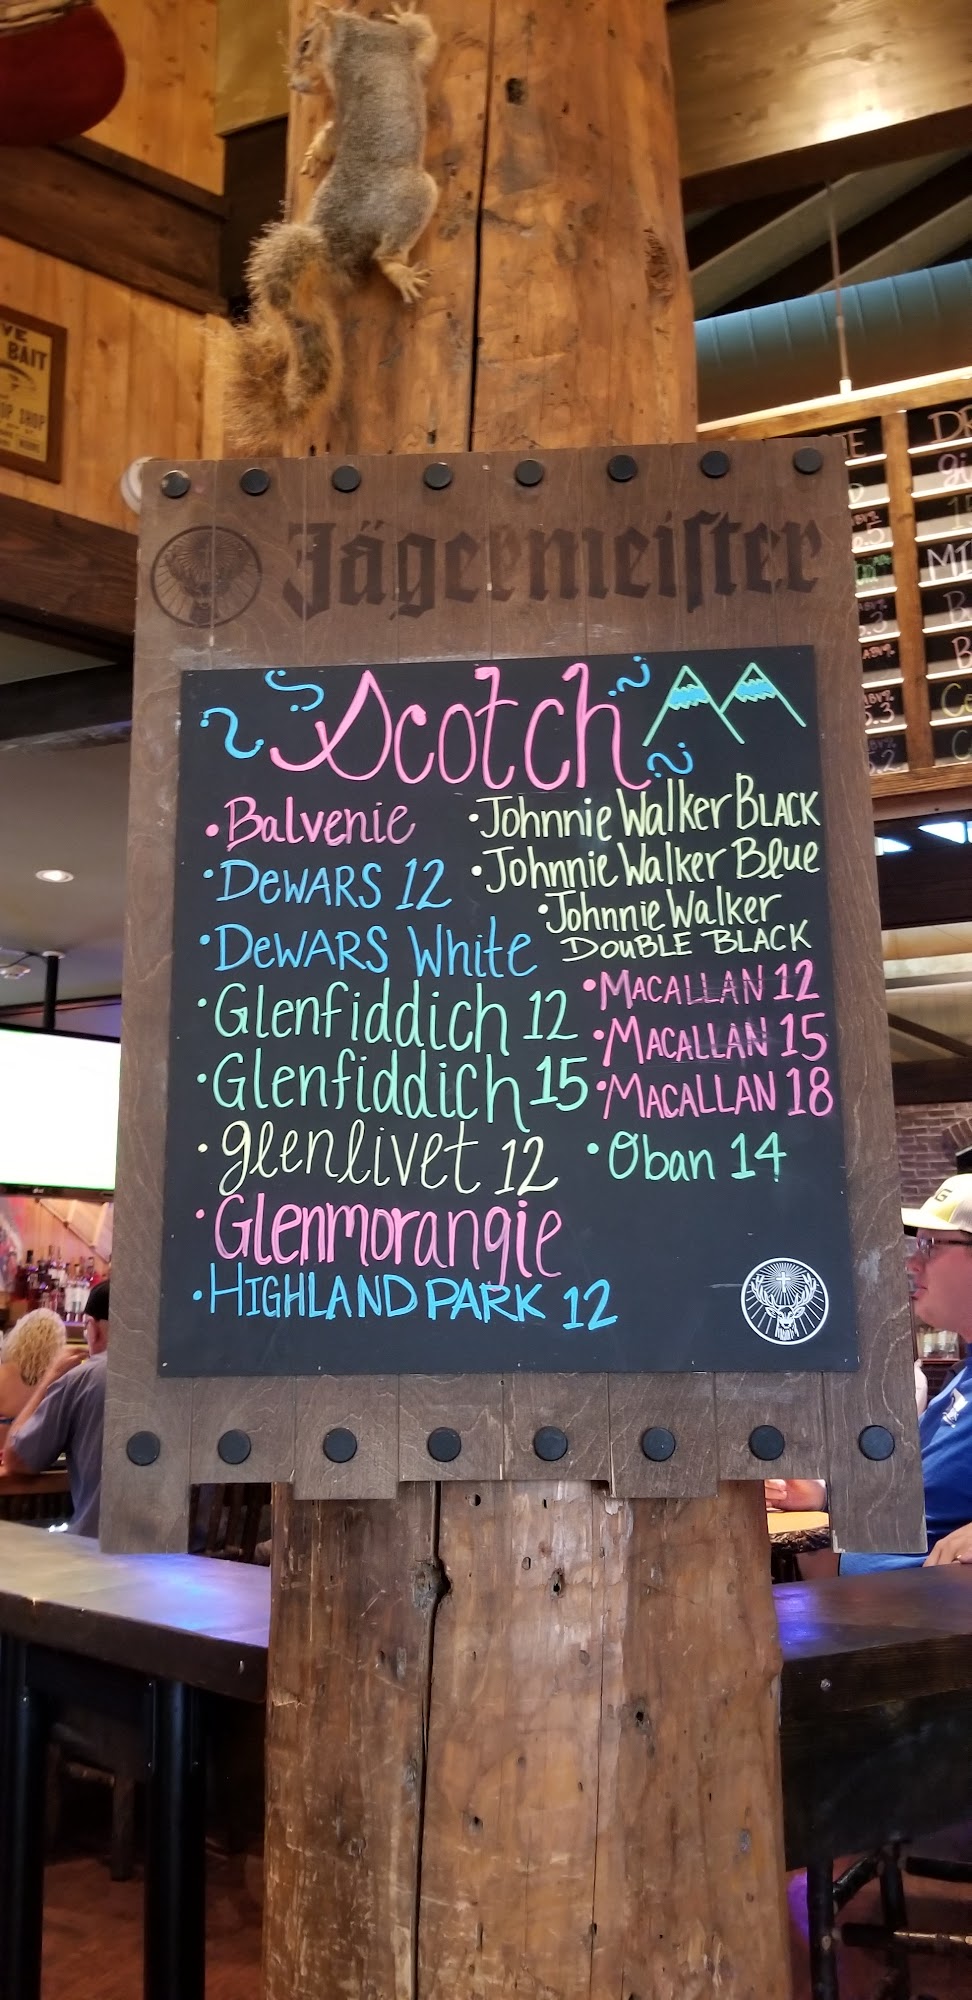 VE
BAIT
OP SHOP
Jägermeister
Scotch
• Balvenie
• DEWARS 12
• DEWARS White
• Glenfiddich 12
• Glenfiddich 15
• glenlivet 12
• Glenmorangie
• HIGHLAND PARK 12
• Johnnie Walker BLACK
• Johnnie Walker Blue
• Johnnie Walker
DOUBLE BLACK
• MACALLAN 12
• MACALLAN 15
• MACALLAN 18
• Oban 14
DR
gi
MI
G